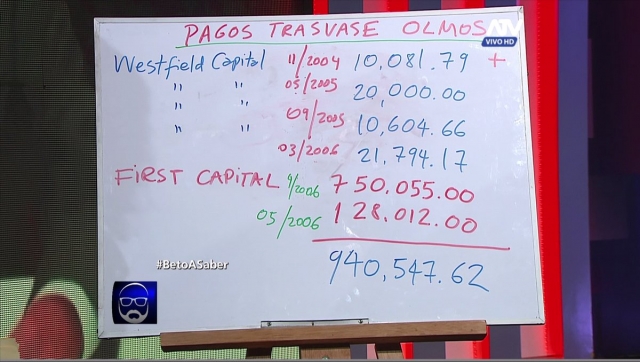 PAGOS TRASVASE OLMOS
ATV
VIVO HD
Westfield Capital 11/2004 10,081.79 +
" " 05/2005 20,000.00
" " 09/2005 10,604.66
" " 03/2006 21,794.17
FIRST CAPITAL 4/2006 750,055.00
05/2006 128,012.00
940,547.62
#BetoASaber